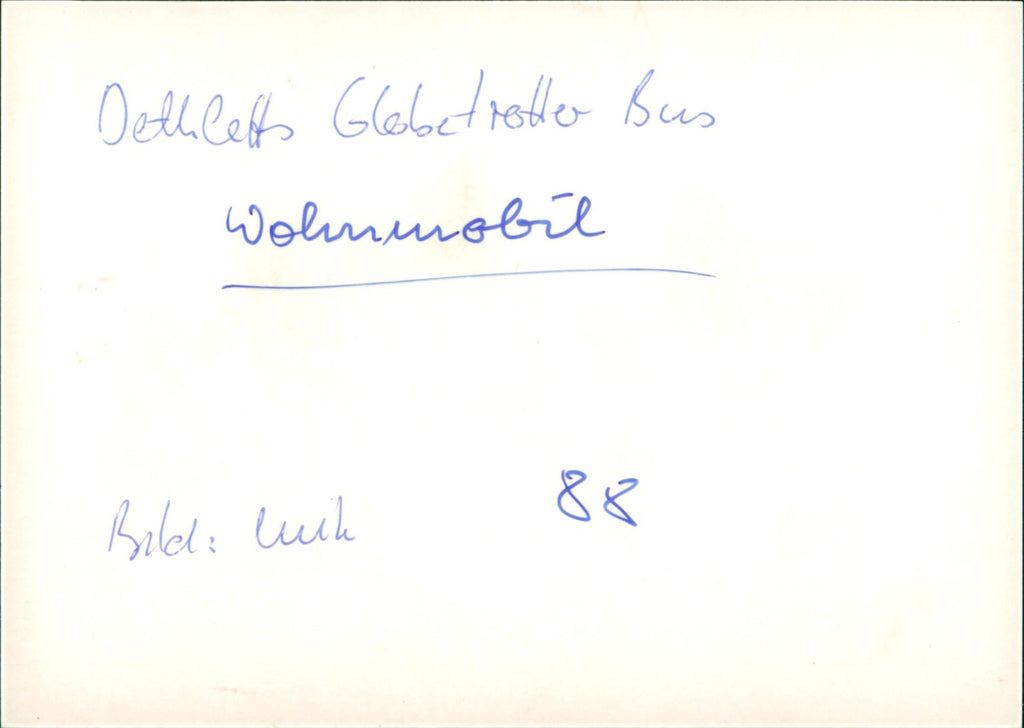 Dethleffs Globetrotter Bus
Wohnmobil
Bild: 88